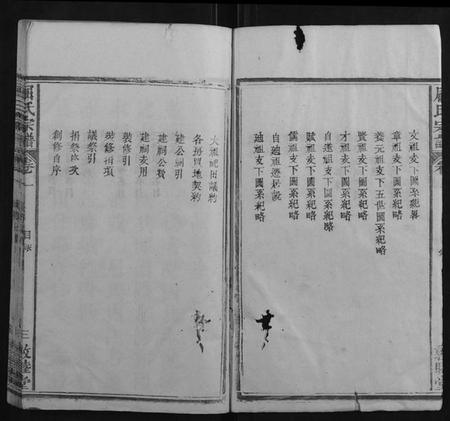 文祖支下圖系紀略
章祖支下圖系紀略
養元祖支下五世圖系紀略
賢祖支下圖系紀略
才祖支下圖系紀略
自遠祖支下圖系紀略
賦祖支下圖系紀略
儒祖支下圖系紀略
自廸祖遷居說
廸祖支下圖系紀略
大祖祀田議約
各捂買地契約
建公祠引
建祠公費
建祠支用
裝修引
裝修捐項
議祭引
捐祭名次
創修自序
氏宗譜
卷一
目錄
三
敦睦堂
氏宗譜
卷
敦睦堂